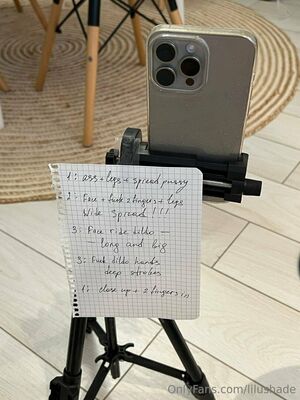 1: ass + legs + spread pussy
2: Face + fuck 2 fingers + legs
Wide spread !!!
3: Face ride dildo —
— long and big
3: Fuck dildo hands
deep strokes
1: close up + 2 fingers !!!
OnlyFans.com/lilushade